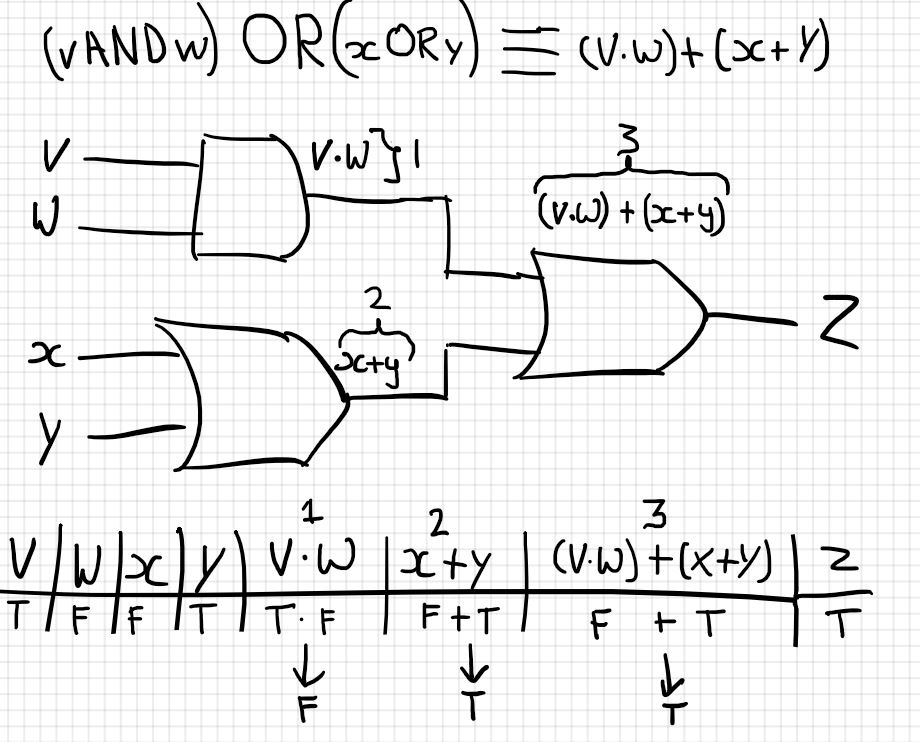 (vANDw) OR(xORy) ≡ (V·W)+(x+Y)
V
W
V·W}1
3
(V·W) + (x+y)
2
x+y
Z
x
y
1
2
3
V W x Y V·W x+y (V·W)+(x+y) Z
T F F T T·F F+T F + T T
↓ ↓ ↓
F T T